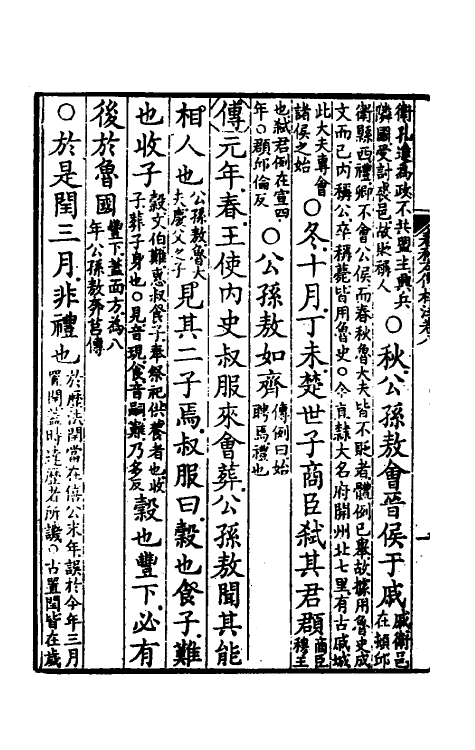 衛孔達為政不共盟主興兵
隣國受討喪邑故貶稱人
○秋公孫敖會晉侯于戚
戚衛邑
在頓丘
衛縣西禮卿不會公侯而春秋魯大夫皆不貶者體例已舉故據用魯史成
文而已內稱公卒稱薨皆用魯史○今直隸大名府開州北七里有古戚城
此大夫專會
諸侯之始
○冬十月丁未楚世子商臣弒其君頵
商臣
穆王
也弒君例在宣四
年○頵邱倫反
○公孫敖如齊
傳例曰始
聘焉禮也
傳元年春王使內史叔服來會葬公孫敖聞其能
相人也
公孫敖魯大
夫慶父之子
見其二子焉叔服曰穀也食子難
也收子
穀文伯難惠叔食子奉祭祀供養者也收
子葬子身也○見音現食音嗣難乃多反
穀也豐下必有
後於魯國
豐下蓋面方為八
年公孫敖奔莒傳
○於是閏三月非禮也
於歷法閏當在僖公末年誤於今年三月
置閏蓋時達歷者所譏○古置閏皆在歲